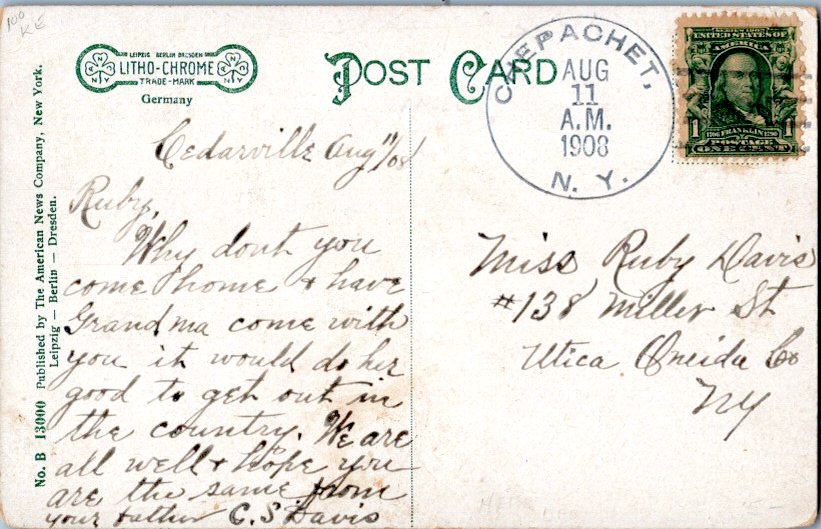 100
KE
LEIPZIG BERLIN DRESDEN
LITHO-CHROME
TRADE-MARK
Germany
POST CARD
CHEPACHET,
AUG
11
A.M.
1908
N. Y.
SERIES 1902
UNITED STATES OF
AMERICA
1 1706 FRANKLIN 1790 1
POSTAGE
ONE CENT
No. B 13000 Published by The American News Company, New York.
Leipzig — Berlin — Dresden.
Cedarville Aug 11/08
Ruby,
Why dont you
come home & have
Grandma come with
you it would do her
good to get out in
the country. We are
all well & hope you
are the same from
your father C. S Davis
Miss Ruby Davis
#138 Miller St
Utica Oneida Co
NY